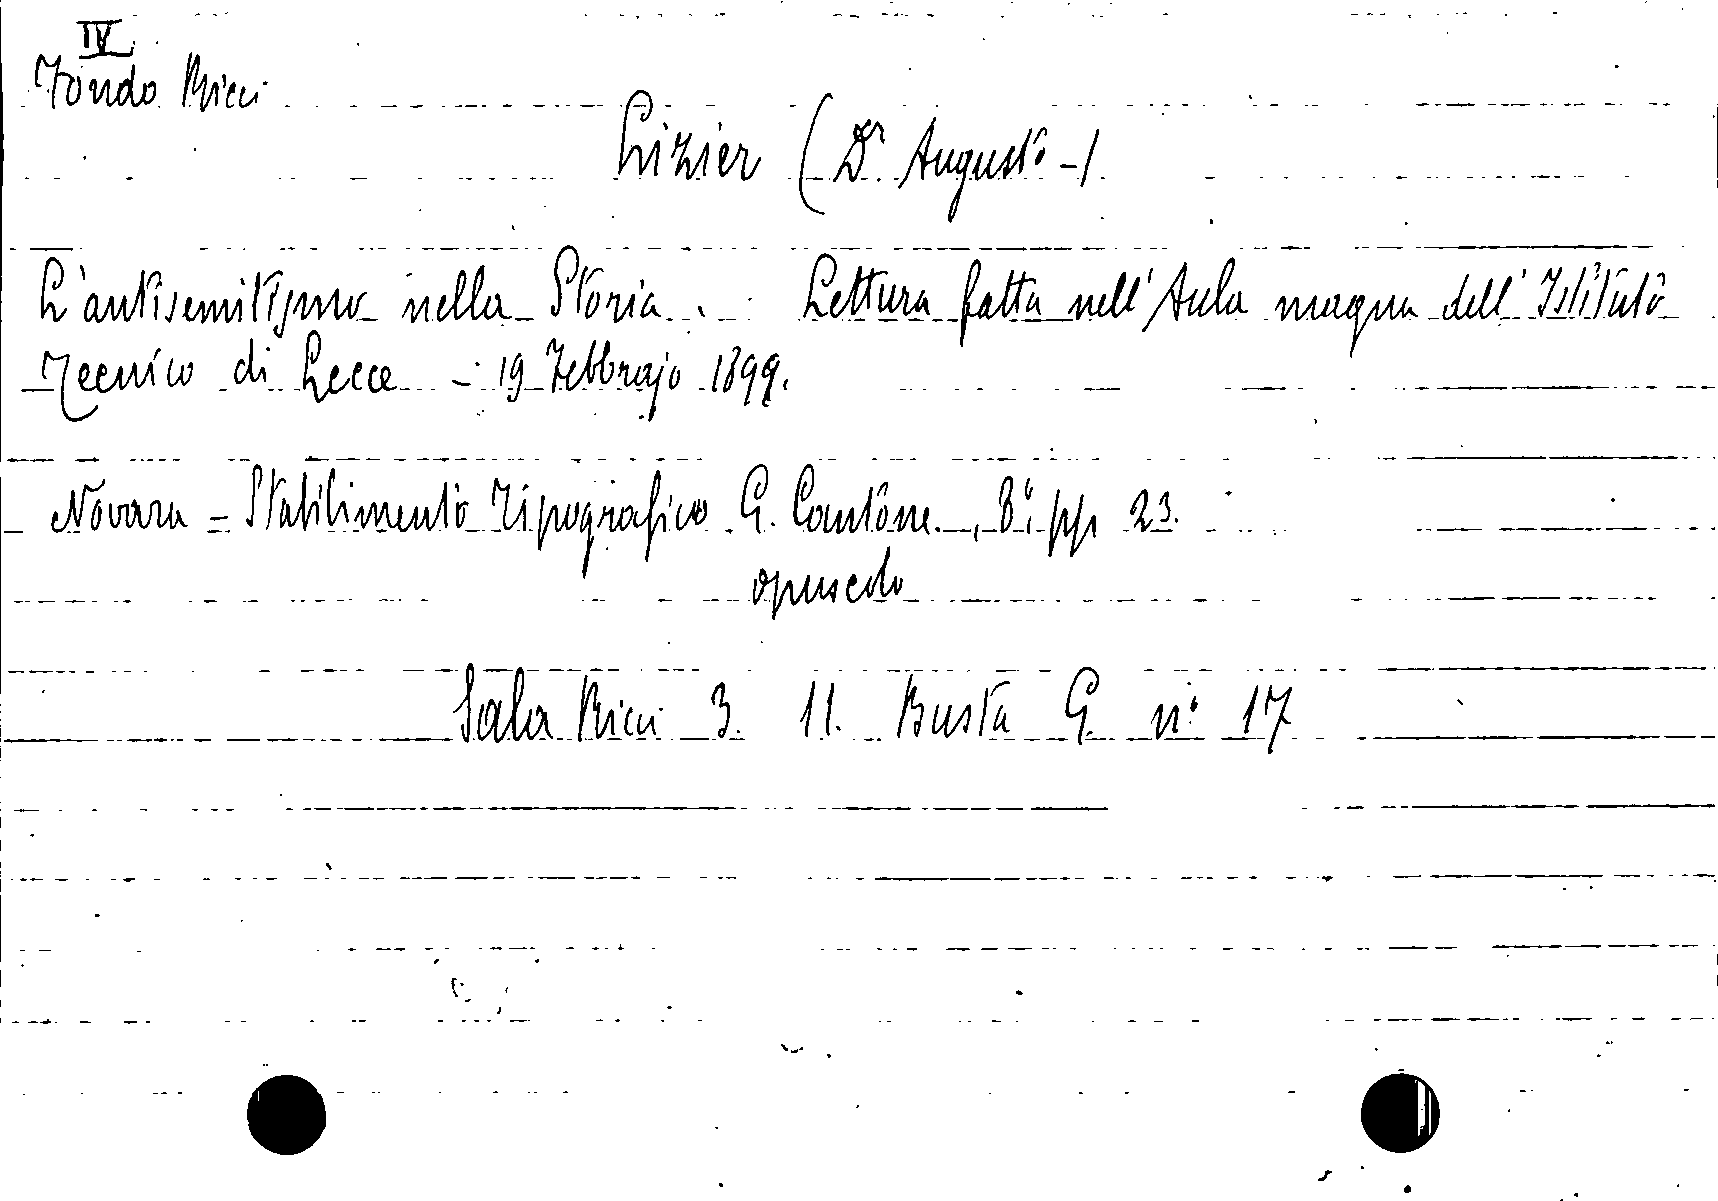 IV
Fondo Ricci
Lizier (Dr. Augusto -)
L'antisemitismo nella Storia. Lettura fatta nell'Aula magna dell'Istituto
Tecnico di Lecce - 19 Febbrajo 1899.
Novara - Stabilimento Tipografico G. Cantone, 8º pp 23.
opuscolo
Sala Ricci 3. 11. Busta G nº 17